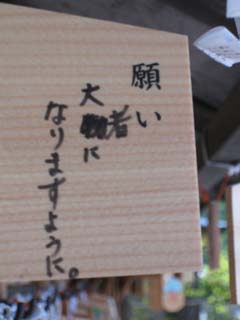 願い
大者に
なりますように。